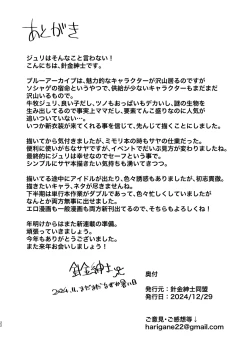 あとがき
ジュリはそんなこと言わない！
こんにちは、針金紳士です。
ブルーアーカイブは、魅力的なキャラクターが沢山居るのですが
ソシャゲの宿命というやつで、供給が少ないキャラクターもまだまだ
沢山いるもので。
牛牧ジュリ、良い子だし、ツノもおっぱいもデカいし、謎の生物を
生み出してるので事実上ママだし、要素てんこ盛りなのに人気が
追いついていない…。
いつか新衣装が来てくれる事を信じて、先んじて描くことにしました。
描いてから気付きましたが、ミモリ本の時もサヤの仕業だった。
便利に使いがちなサヤですが、イベントでだいぶ見方が変わりましたね。
最終的にジュリは幸せなのでセーフという事で。
シンプルにサヤ本描きたい気持ちも出てきちゃった。
描いてる途中にアイドルが出たり、色々誘惑もありましたが、初志貫徹。
描きたいキャラ、ネタが尽きませんね。
下半期は単行本作業がダブルであって、色々忙しくしていましたが
なんとか両方無事に出せました。
エロ漫画も一般漫画も両方新刊出てるので、そちらもよろしくね！
年明けからはまた新連載の準備。
頑張っていきましょう。
今年もありがとうございました。
また来年お会いしましょう！
針金紳士
2024.11.
奥付
発行元：針金紳士同盟
発行日：2024/12/29
ご意見・ご感想等↓
harigane22@gmail.com